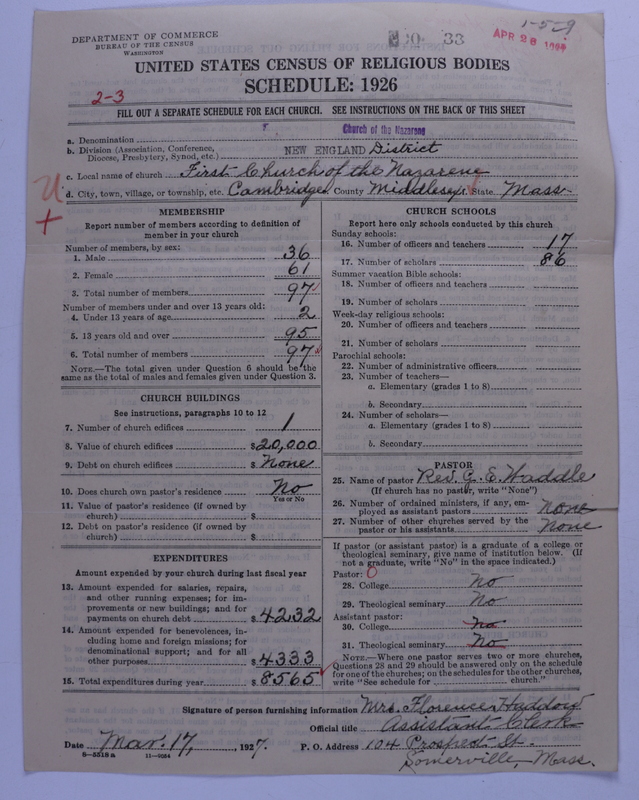 DEPARTMENT OF COMMERCE
BUREAU OF THE CENSUS
WASHINGTON
33
APR 28
1-5-9
UNITED STATES CENSUS OF RELIGIOUS BODIES
SCHEDULE: 1926
2-3
FILL OUT A SEPARATE SCHEDULE FOR EACH CHURCH. SEE INSTRUCTIONS ON THE BACK OF THIS SHEET
a. Denomination Church of the Nazarene
b. Division (Association, Conference, Diocese, Presbytery, Synod, etc.) NEW ENGLAND District
c. Local name of church First Church of the Nazarene
d. City, town, village, or township, etc. Cambridge County Middlesex State Mass.
MEMBERSHIP
Report number of members according to definition of
member in your church
Number of members, by sex:
1. Male 36
2. Female 61
3. Total number of members 97
Number of members under and over 13 years old:
4. Under 13 years of age 2
5. 13 years old and over 95
6. Total number of members 97
NOTE.—The total given under Question 6 should be the
same as the total of males and females given under Question 3.
CHURCH BUILDINGS
See instructions, paragraphs 10 to 12
7. Number of church edifices 1
8. Value of church edifices $20,000
9. Debt on church edifices $ None
10. Does church own pastor's residence No
Yes or No
11. Value of pastor's residence (if owned by
church) $
12. Debt on pastor's residence (if owned by
church) $
EXPENDITURES
Amount expended by your church during last fiscal year
13. Amount expended for salaries, repairs,
and other running expenses; for im-
provements or new buildings; and for
payments on church debt $4232
14. Amount expended for benevolences, in-
cluding home and foreign missions; for
denominational support; and for all
other purposes $4333
15. Total expenditures during year $8565
CHURCH SCHOOLS
Report here only schools conducted by this church
Sunday schools:
16. Number of officers and teachers 17
17. Number of scholars 86
Summer vacation Bible schools:
18. Number of officers and teachers
19. Number of scholars
Week-day religious schools:
20. Number of officers and teachers
21. Number of scholars
Parochial schools:
22. Number of administrative officers
23. Number of teachers—
a. Elementary (grades 1 to 8)
b. Secondary
24. Number of scholars—
a. Elementary (grades 1 to 8)
b. Secondary
PASTOR
25. Name of pastor Rev. G. E. Waddle
(If church has no pastor, write "None")
26. Number of ordained ministers, if any, em-
ployed as assistant pastors None
27. Number of other churches served by the
pastor or his assistants None
If pastor (or assistant pastor) is a graduate of a college or
theological seminary, give name of institution below. (If
not a graduate, write "No" in the space indicated.)
Pastor:
28. College No
29. Theological seminary No
Assistant pastor:
30. College No
31. Theological seminary No
NOTE.—Where one pastor serves two or more churches,
Questions 28 and 29 should be answered only on the schedule
for one of the churches; on the schedules for the other churches,
write "See schedule for church."
Signature of person furnishing information Mrs. Florence Haddow
Official title Assistant Clerk
Date Mar. 17, 1927. P. O. Address 104 Prospect St.
Somerville, Mass.
8-5518a 11-9024